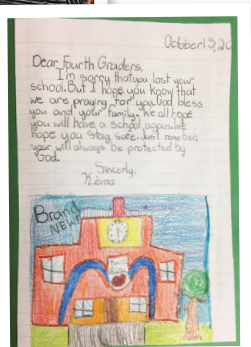 October 13, 20
Dear Fourth Graders,
I'm sorry that you lost your
school. But I hope you know that
we are praying for you. God bless
you and your family. We all hope
you will have a school again. We
hope you stay safe. Just remember,
your will always be protected by
God.
Sincerly,
Kiana
Brand
NEW!